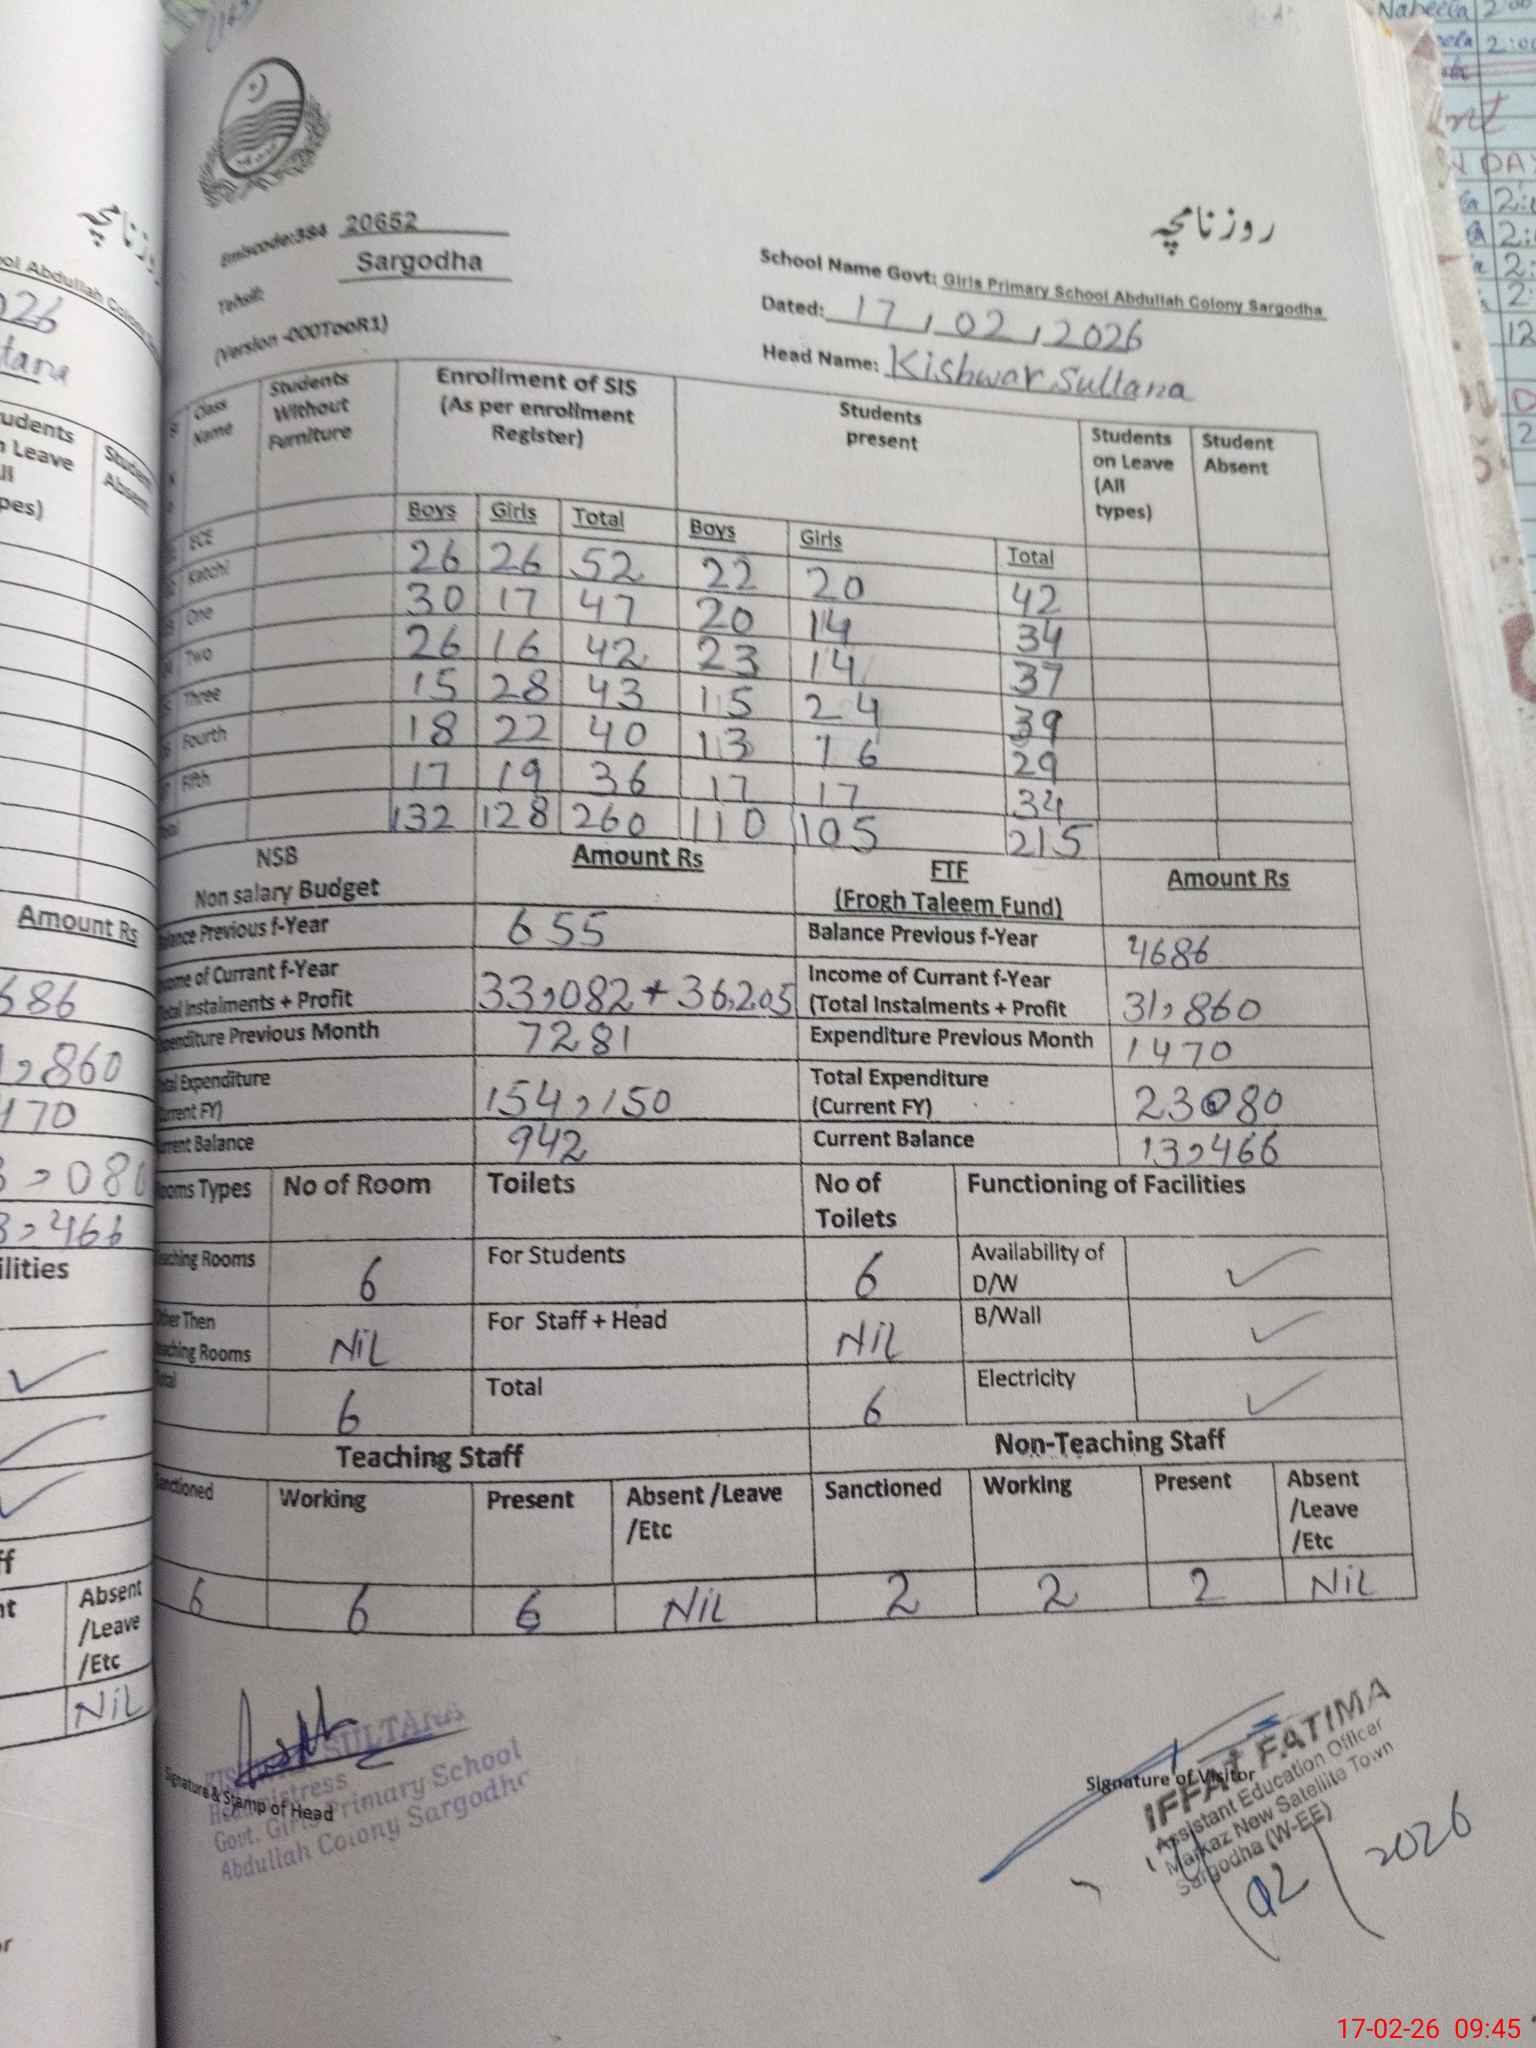 روزنامچہ
Emiscode:384 20652
Tehsil: Sargodha
(Version -000TooR1)
School Name Govt: Girls Primary School Abdullah Colony Sargodha
Dated: 17,02,2026
Head Name: Kishwar Sultana
Class Name | Students Without Furniture | Enrollment of SIS (As per enrollment Register) | Students present | Students on Leave (All types) | Student Absent
Boys Girls Total Boys Girls Total
ECE
Katchi 26 26 52 22 20 42
One 30 17 47 20 14 34
Two 26 16 42 23 14 37
Three 15 28 43 15 24 39
Fourth 18 22 40 13 16 29
Fifth 17 19 36 17 17 34
132 128 260 110 105 215
NSB Non salary Budget | Amount Rs | FTF (Frogh Taleem Fund) | Amount Rs
Balance Previous f-Year 655 | Balance Previous f-Year 4686
Income of Currant f-Year Total Instalments + Profit 33,082 + 36,205 | Income of Currant f-Year (Total Instalments + Profit 31,860
Expenditure Previous Month 7281 | Expenditure Previous Month 1470
Total Expenditure (Current FY) 154,150 | Total Expenditure (Current FY) 23080
Current Balance 942 | Current Balance 13,466
Rooms Types | No of Room | Toilets | No of Toilets | Functioning of Facilities
Teaching Rooms 6 | For Students 6 | Availability of D/W ✓
Other Then Teaching Rooms NiL | For Staff + Head NiL | B/Wall ✓
Total 6 | Total 6 | Electricity ✓
Teaching Staff | Non-Teaching Staff
Sanctioned | Working | Present | Absent /Leave /Etc | Sanctioned | Working | Present | Absent /Leave /Etc
6 6 6 NiL 2 2 2 NiL
Signature & Stamp of Head
SULTANA
Headmistress
Govt. Girls Primary School
Abdullah Colony Sargodha
Signature of Visitor
IFFAT FATIMA
Assistant Education Officer
Markaz New Satellite Town
Sargodha (W-EE)
02/2026
17-02-26 09:45